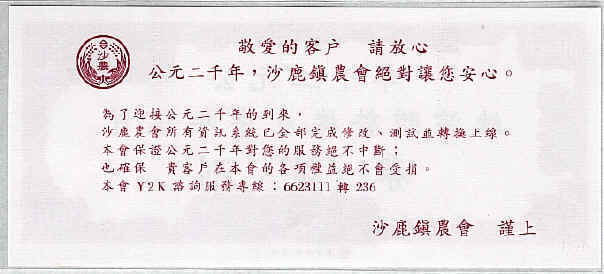 沙農
敬愛的客戶　請放心
公元二千年，沙鹿鎮農會絕對讓您安心。
為了迎接公元二千年的到來，
沙鹿農會所有資訊系統已全部完成修改、測試並轉換上線。
本會保證公元二千年對您的服務絕不中斷；
也確保　貴客戶在本會的各項權益絕不會受損。
本會 Y2K 諮詢服務專線：6623111 轉 236
沙鹿鎮農會　謹上